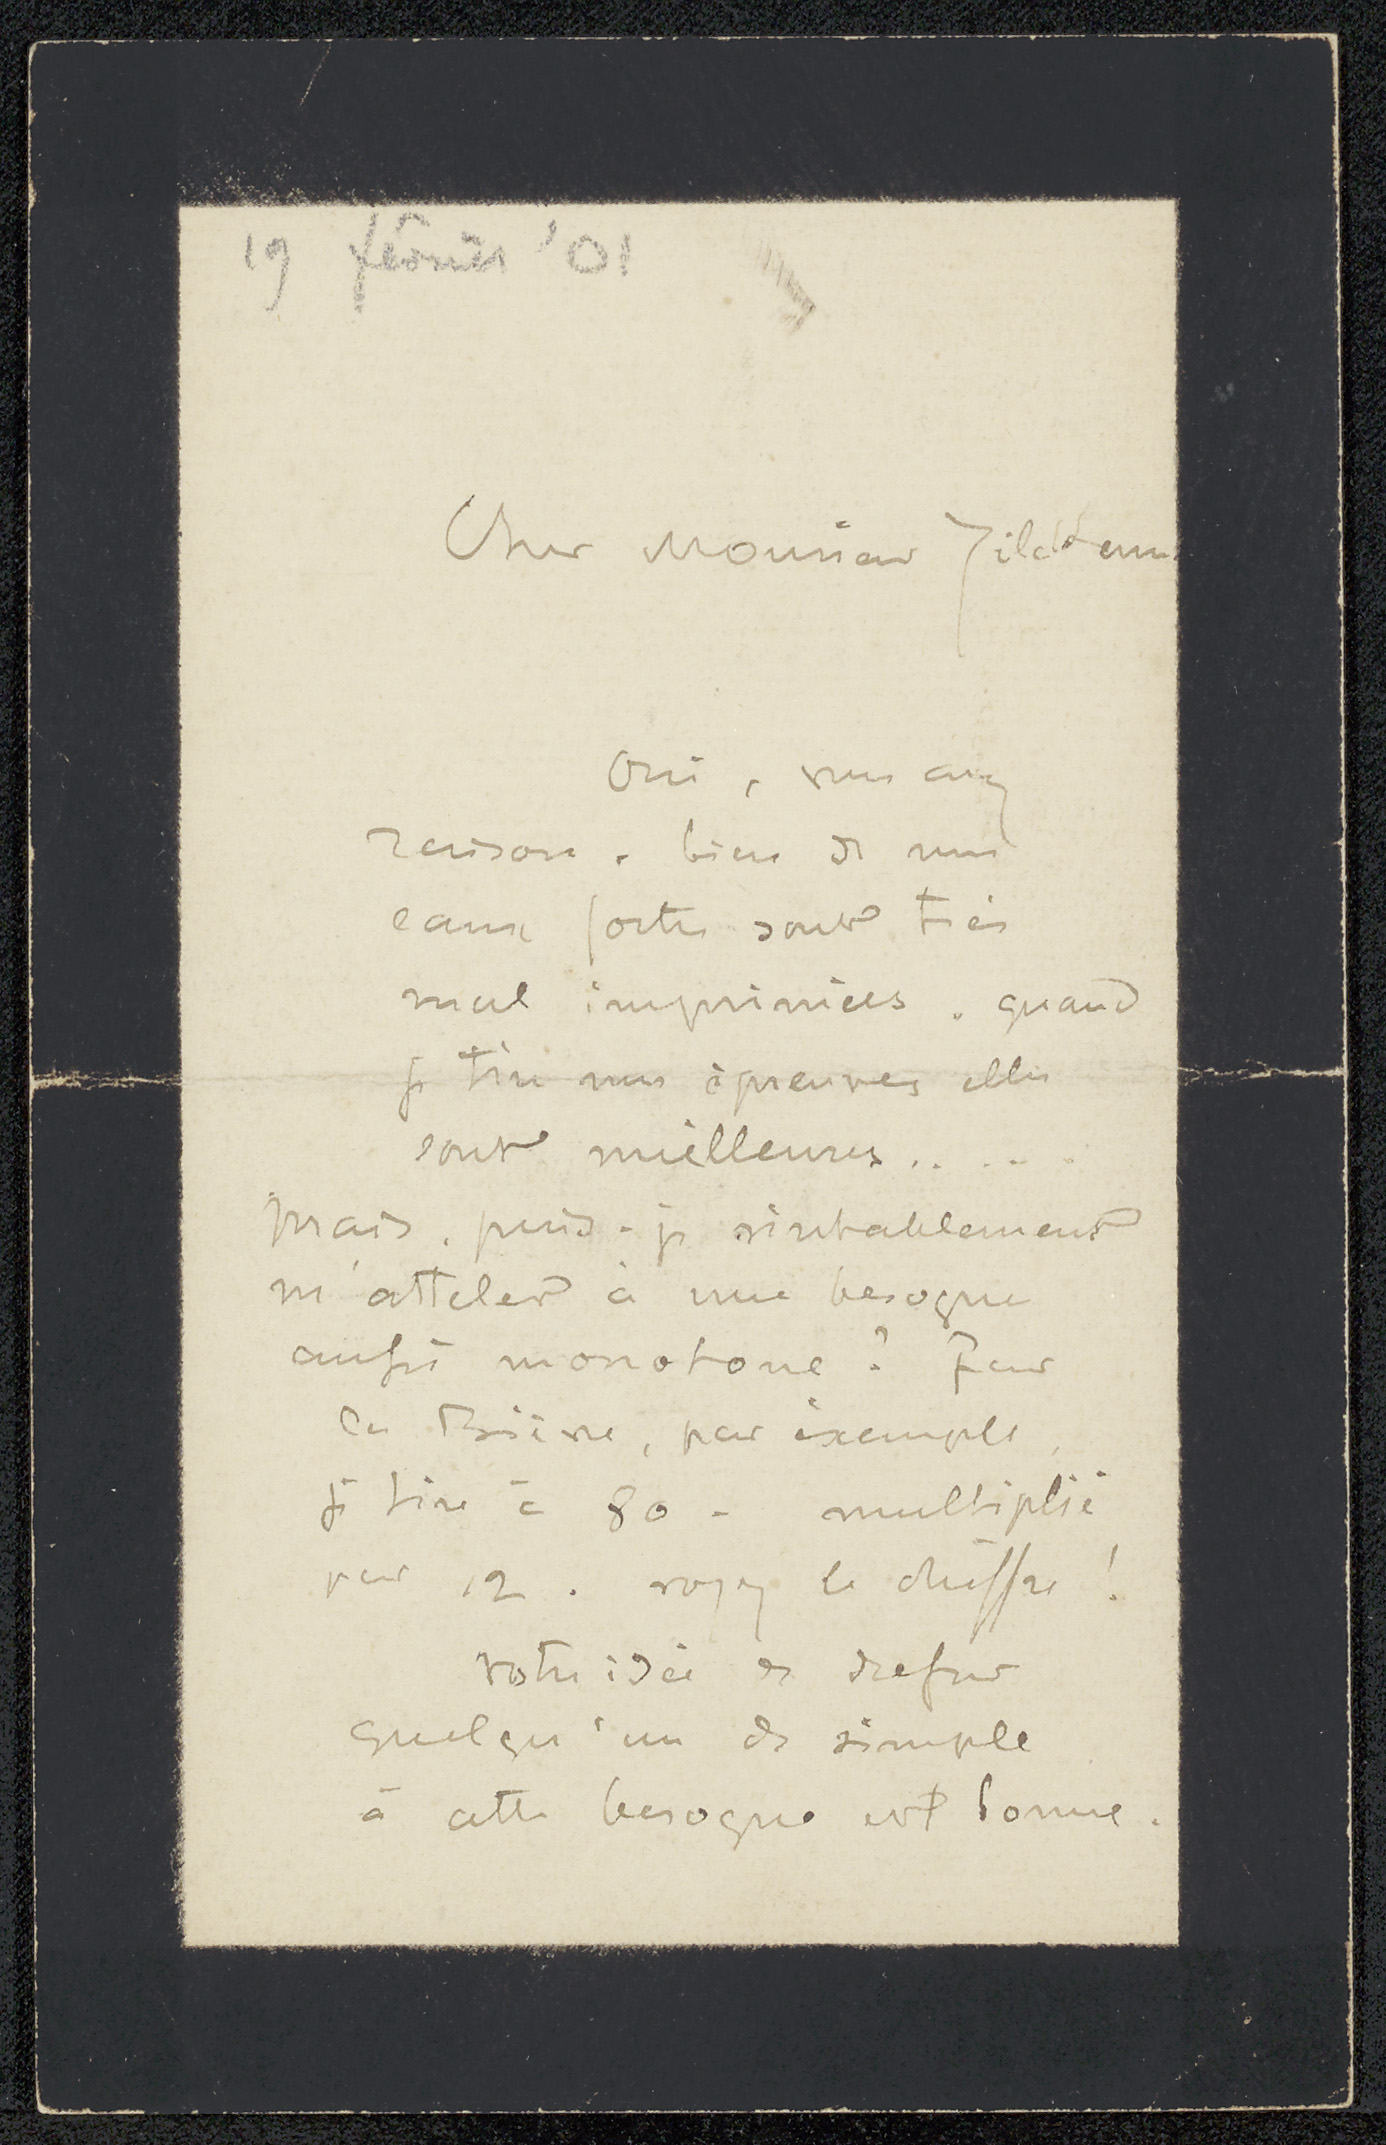 19 février '01
Cher Monsieur Zilcken
Oui, vous avez
raison. bien de mes
eaux fortes sont très
mal imprimées. quand
je tire mes épreuves elles
sont meilleures.. ...
mais, puis-je véritablement
m'atteler à une besogne
aussi monotone? Pour
la Bièvre, par exemple,
je tire à 80 - multiplié
par 12. voyez le chiffre!
votre idée de dresser
quelqu'un de simple
à cette besogne est bonne.